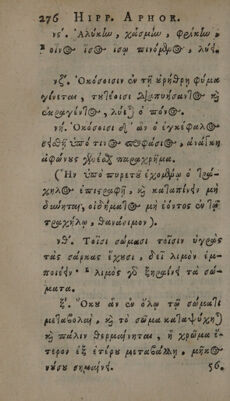 276 HIPP. APHOR.
νϛ΄. Ἀλύκη, χάσμη, φρίκη,
οἶνος ἴσος ἴσῳ πινόμενος, λύει
νζ΄. Ὁκόσοισιν ἐν τῇ οὐρήθρῃ φῦμα
γίνεται, τουτέοισι διαπυήσαντος καὶ
ἐκραγέντος, λύεται ὁ πόνος.
νη΄. Ὁκόσοισι δ' ἂν ὁ ἐγκέφαλος
σεισθῇ ὑπό τινος προφάσιος, ἀνάγκη
ἀφώνους γενέσθαι παραχρῆμα.
(Ἢν ὑπὸ πυρετοῦ ἐχομένῳ ὁ τρά-
χηλος ἐπιστραφῇ, καὶ καταπίνειν μὴ
δύνηται, οἰδήματος μὴ ἐόντος ἐν τῷ
τραχήλῳ, θανάσιμον).
νθ΄. Τοῖσι σώμασι τοῖσιν ὑγρὰς
τὰς σάρκας ἔχουσι, δεῖ λιμὸν ἐμ-
ποιέειν· λιμὸς γὰρ ξηραίνει τὰ σώ-
ματα.
ξ΄. Ὅκου ἂν ἐν ὅλῳ τῷ σώματι
μεταβολαὶ, καὶ τὸ σῶμα καταψύχηται
καὶ πάλιν θερμαίνηται, ἢ χρῶμα ἕ-
τερον ἐξ ἑτέρου μεταβάλλῃ, μῆκος
νούσου σημαίνει.
56.